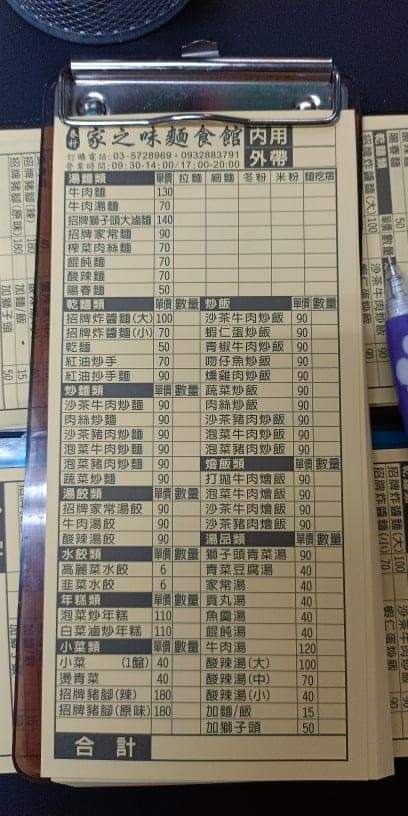 眷村 家之味麵食館 內用
外帶
訂購電話:03-5728969·0932883791
營業時間:09:30-14:00/17:00-20:00
湯麵類 單價 拉麵 細麵 冬粉 米粉 麵疙瘩
牛肉麵 130
牛肉湯麵 70
招牌獅子頭大滷麵 140
招牌家常麵 90
榨菜肉絲麵 70
餛飩麵 70
酸辣麵 70
陽春麵 50
乾麵類 單價 數量
招牌炸醬麵(大) 100
招牌炸醬麵(小) 70
乾麵 50
紅油抄手 70
紅油抄手麵 90
炒麵類 單價 數量
沙茶牛肉炒麵 90
肉絲炒麵 90
沙茶豬肉炒麵 90
泡菜牛肉炒麵 90
泡菜豬肉炒麵 90
蔬菜炒麵 90
湯餃類 單價 數量
招牌家常湯餃 90
牛肉湯餃 90
酸辣湯餃 90
水餃類 單價 數量
高麗菜水餃 6
韭菜水餃 6
年糕類 單價 數量
泡菜炒年糕 110
白菜滷炒年糕 110
小菜類 單價 數量
小菜 (1盤) 40
燙青菜 40
招牌豬腳(辣) 180
招牌豬腳(原味) 180
合計
炒飯 單價 數量
沙茶牛肉炒飯 90
蝦仁蛋炒飯 90
青椒牛肉炒飯 90
吻仔魚炒飯 90
燻雞肉炒飯 90
蔬菜炒飯 90
肉絲炒飯 90
沙茶豬肉炒飯 90
泡菜牛肉炒飯 90
泡菜豬肉炒飯 90
燴飯類 單價 數量
打拋牛肉燴飯 90
泡菜牛肉燴飯 90
沙茶牛肉燴飯 90
沙茶豬肉燴飯 90
湯品類 單價 數量
獅子頭青菜湯 90
青菜豆腐湯 40
家常湯 40
貢丸湯 40
魚羹湯 40
餛飩湯 40
牛肉湯 120
酸辣湯(大) 100
酸辣湯(中) 70
酸辣湯(小) 40
加麵/飯 15
加獅子頭 50